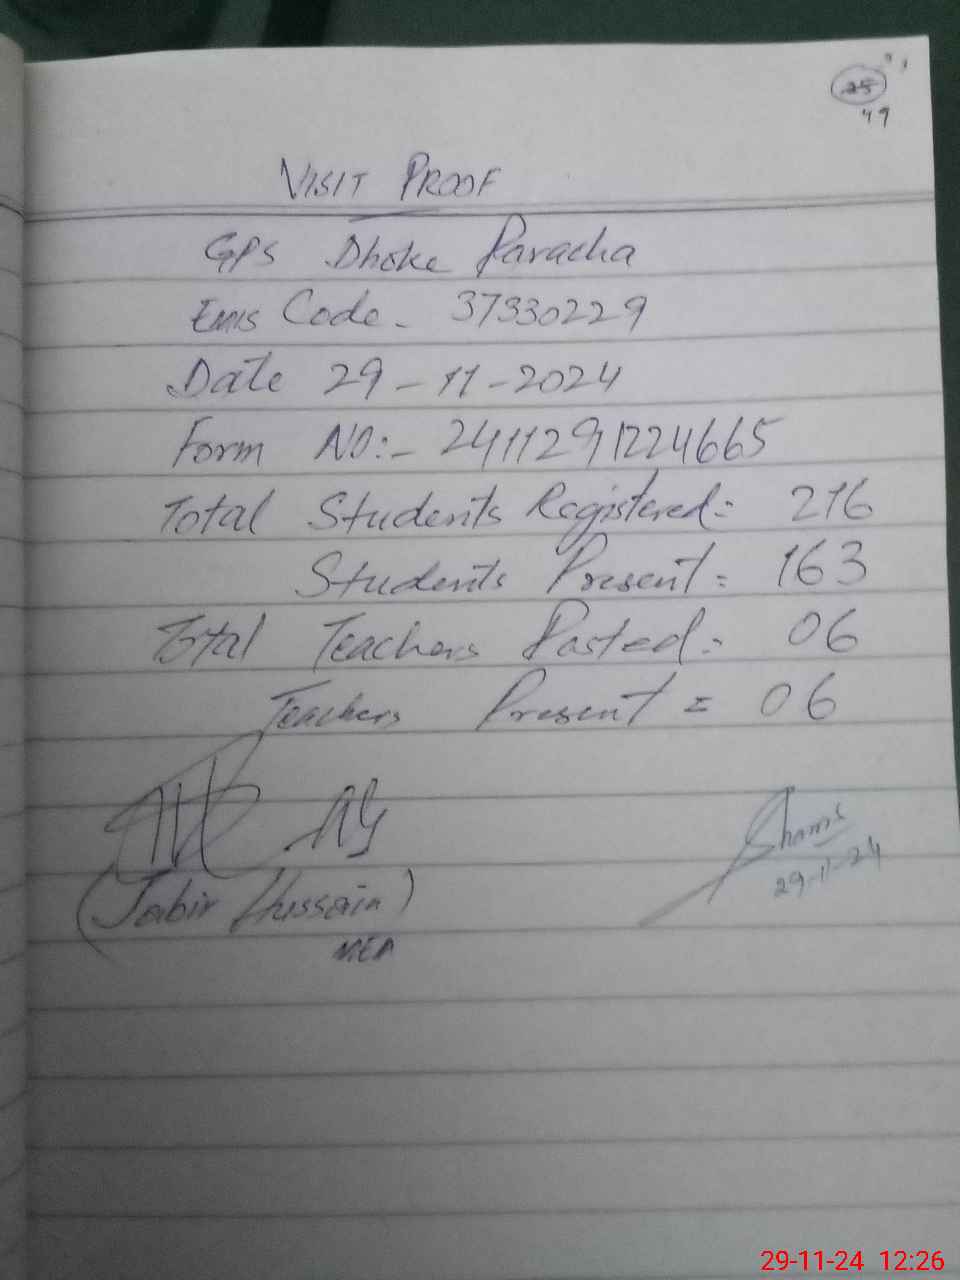 25
49
VISIT PROOF
GPS Dhoke Paracha
Emis Code - 37330229
Date 29-11-2024
Form NO:- 2411291224665
Total Students Registered = 216
Students Present = 163
Total Teachers Posted = 06
Teachers Present = 06
Shams
29-11-24
(Jabir Hussain)
MEA
29-11-24 12:26